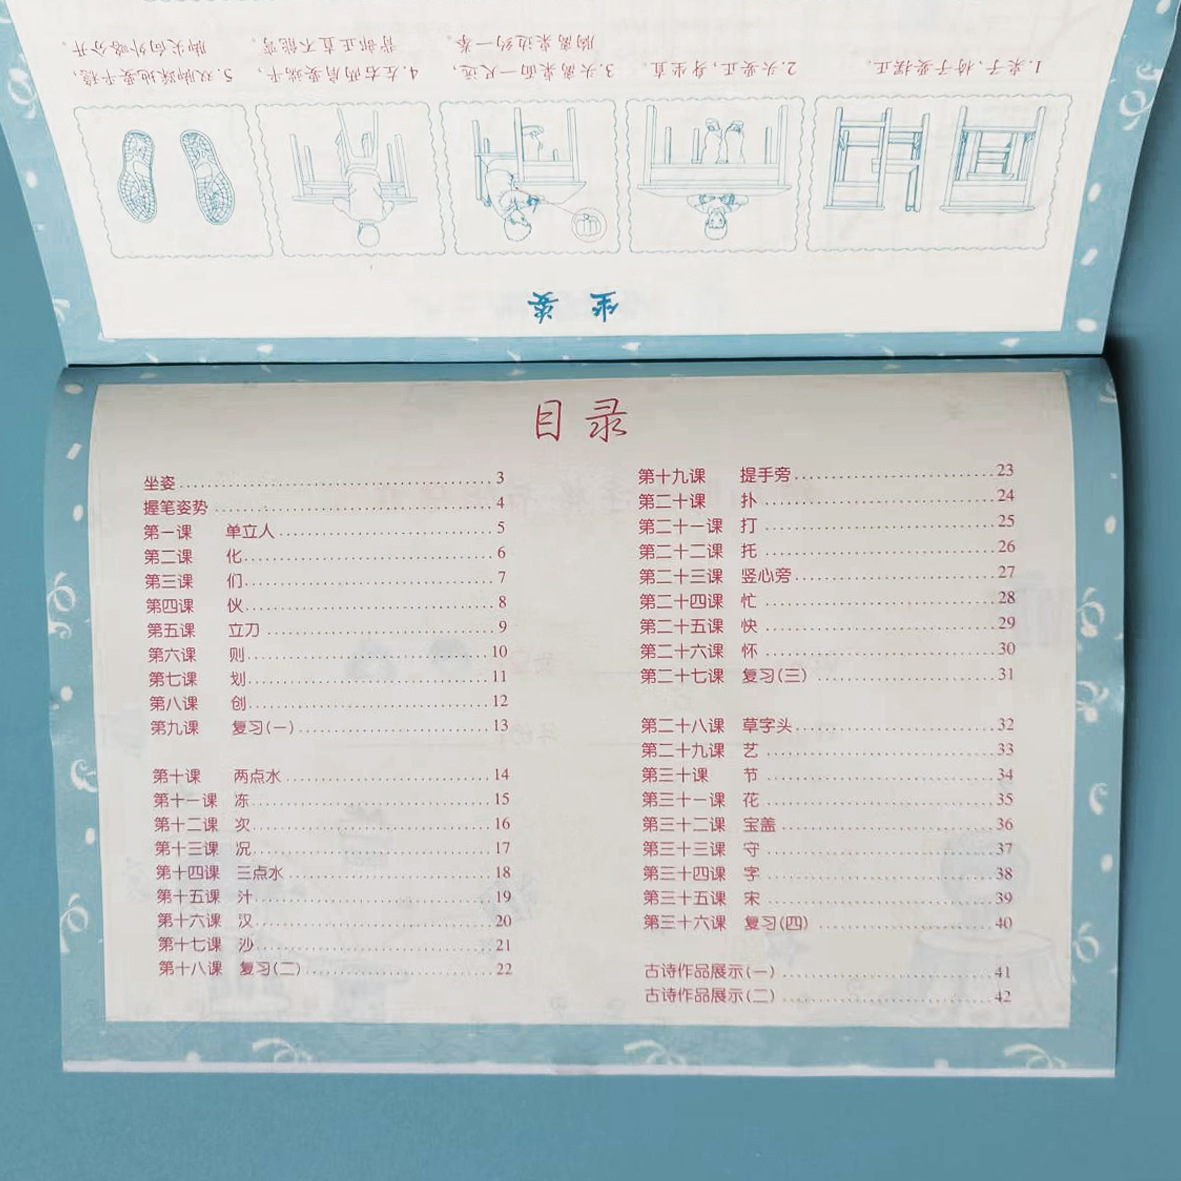 坐姿
1.桌子、椅子要摆正。
2.头要正，身坐直
3.头离桌面一尺远，
胸离桌边约一拳。
4.左右两肩要端平，
背部正直不能弯。
5.双脚踩地要平稳，
脚尖向外略分开。
目录
坐姿 3
握笔姿势 4
第一课 单立人 5
第二课 化 6
第三课 们 7
第四课 伙 8
第五课 立刀 9
第六课 则 10
第七课 划 11
第八课 创 12
第九课 复习(一) 13
第十课 两点水 14
第十一课 冻 15
第十二课 次 16
第十三课 况 17
第十四课 三点水 18
第十五课 汁 19
第十六课 汉 20
第十七课 沙 21
第十八课 复习(二) 22
第十九课 提手旁 23
第二十课 扑 24
第二十一课 打 25
第二十二课 托 26
第二十三课 竖心旁 27
第二十四课 忙 28
第二十五课 快 29
第二十六课 怀 30
第二十七课 复习(三) 31
第二十八课 草字头 32
第二十九课 艺 33
第三十课 节 34
第三十一课 花 35
第三十二课 宝盖 36
第三十三课 守 37
第三十四课 字 38
第三十五课 宋 39
第三十六课 复习(四) 40
古诗作品展示(一) 41
古诗作品展示(二) 42